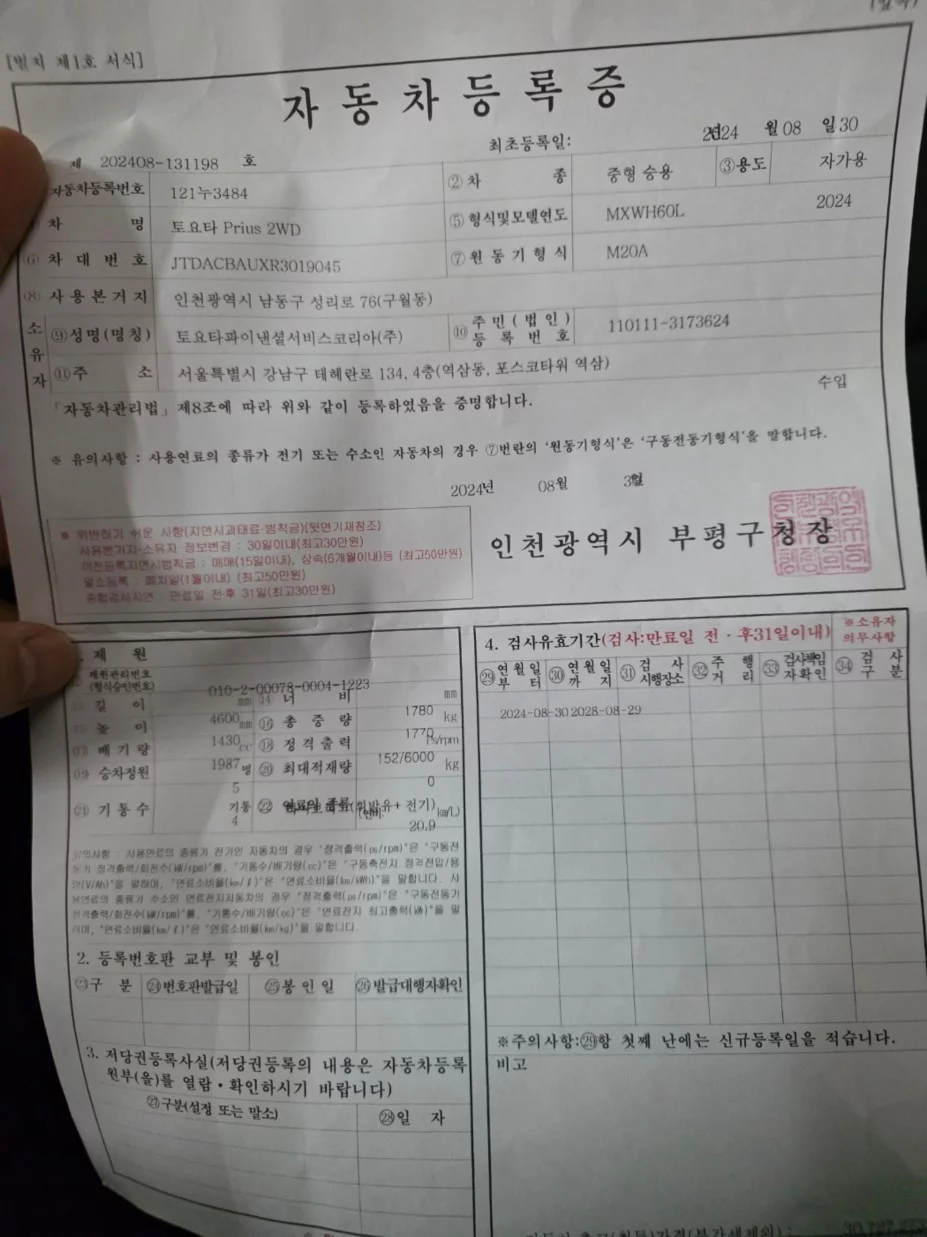 [별지 제1호 서식]
자동차등록증
제 202408-131198 호
최초등록일: 2024 월 08 일 30
자동차등록번호 121누3484 ②차 종 중형 승용 ③용도 자가용
차 명 토요타 Prius 2WD ⑤형식및모델연도 MXWH60L 2024
⑥차대번호 JTDACBAUXR3019045 ⑦원동기형식 M20A
⑧사용본거지 인천광역시 남동구 성리로 76(구월동)
소유자 ⑨성명(명칭) 토요타파이낸셜서비스코리아(주) ⑩주민(법인)등록번호 110111-3173624
⑪주 소 서울특별시 강남구 테헤란로 134, 4층(역삼동, 포스코타워 역삼)
수입
「자동차관리법」 제8조에 따라 위와 같이 등록하였음을 증명합니다.
※ 유의사항 : 사용연료의 종류가 전기 또는 수소인 자동차의 경우 ⑦번란의 '원동기형식'은 '구동전동기형식'을 말합니다.
2024년 08월
인천광역시 부평구청장
● 위반하기 쉬운 사항(지연시과태료·범칙금)(뒷면기재참조)
사용본거지·소유자 정보변경 : 30일이내(최고30만원)
이전등록지연시범칙금 : 매매(15일이내), 상속(6개월이내)등 (최고50만원)
말소등록 : 폐차일(1월이내) (최고50만원)
종합검사지연 : 만료일 전·후 31일(최고30만원)
제 원
제원관리번호
(형식승인번호) 010-2-00078-0004-1223
길 이 4600 mm ⑭너 비 1780 mm
높 이 1430 mm ⑯총 중 량 1770 kg
⑰배기량 1987 cc ⑱정격출력 152/6000 Ps/rpm
⑲승차정원 5 명 ⑳최대적재량 0 kg
㉑기통수 4 기통 ㉒연료의 종류 (휘발유+ 전기) (연비 20.9 km/L)
유의사항 : 사용연료의 종류가 전기인 자동차의 경우 "정격출력(ps/rpm)"은 "구동전
동기 정격출력/회전수(kW/rpm)"를, "기통수/배기량(cc)"은 "구동축전지 정격전압/용
량(V/Ah)"을 말하며, "연료소비율(km/ℓ)"은 "연료소비율(km/kWh)"을 말합니다. 사
용연료의 종류가 수소인 연료전지자동차의 경우 "정격출력(ps/rpm)"은 "구동전동기
정격출력/회전수(kW/rpm)"를, "기통수/배기량(cc)"은 "연료전지 최고출력(kW)"을 말
하며, "연료소비율(km/ℓ)"은 "연료소비율(km/kg)"을 말합니다.
2. 등록번호판 교부 및 봉인
㉓구 분 ㉔번호판발급일 ㉕봉인일 ㉖발급대행자확인
3. 저당권등록사실(저당권등록의 내용은 자동차등록
원부(을)를 열람·확인하시기 바랍니다)
㉗구분(설정 또는 말소) ㉘일 자
4. 검사유효기간(검사:만료일 전·후31일이내)
※소유자
의무사항
㉙연월일부터 ㉚연월일까지 ㉛검사시행장소 ㉜주행거리 ㉝검사책임자확인 ㉞검사구분
2024-08-30 2028-08-29
※주의사항:㉙항 첫째 난에는 신규등록일을 적습니다.
비고